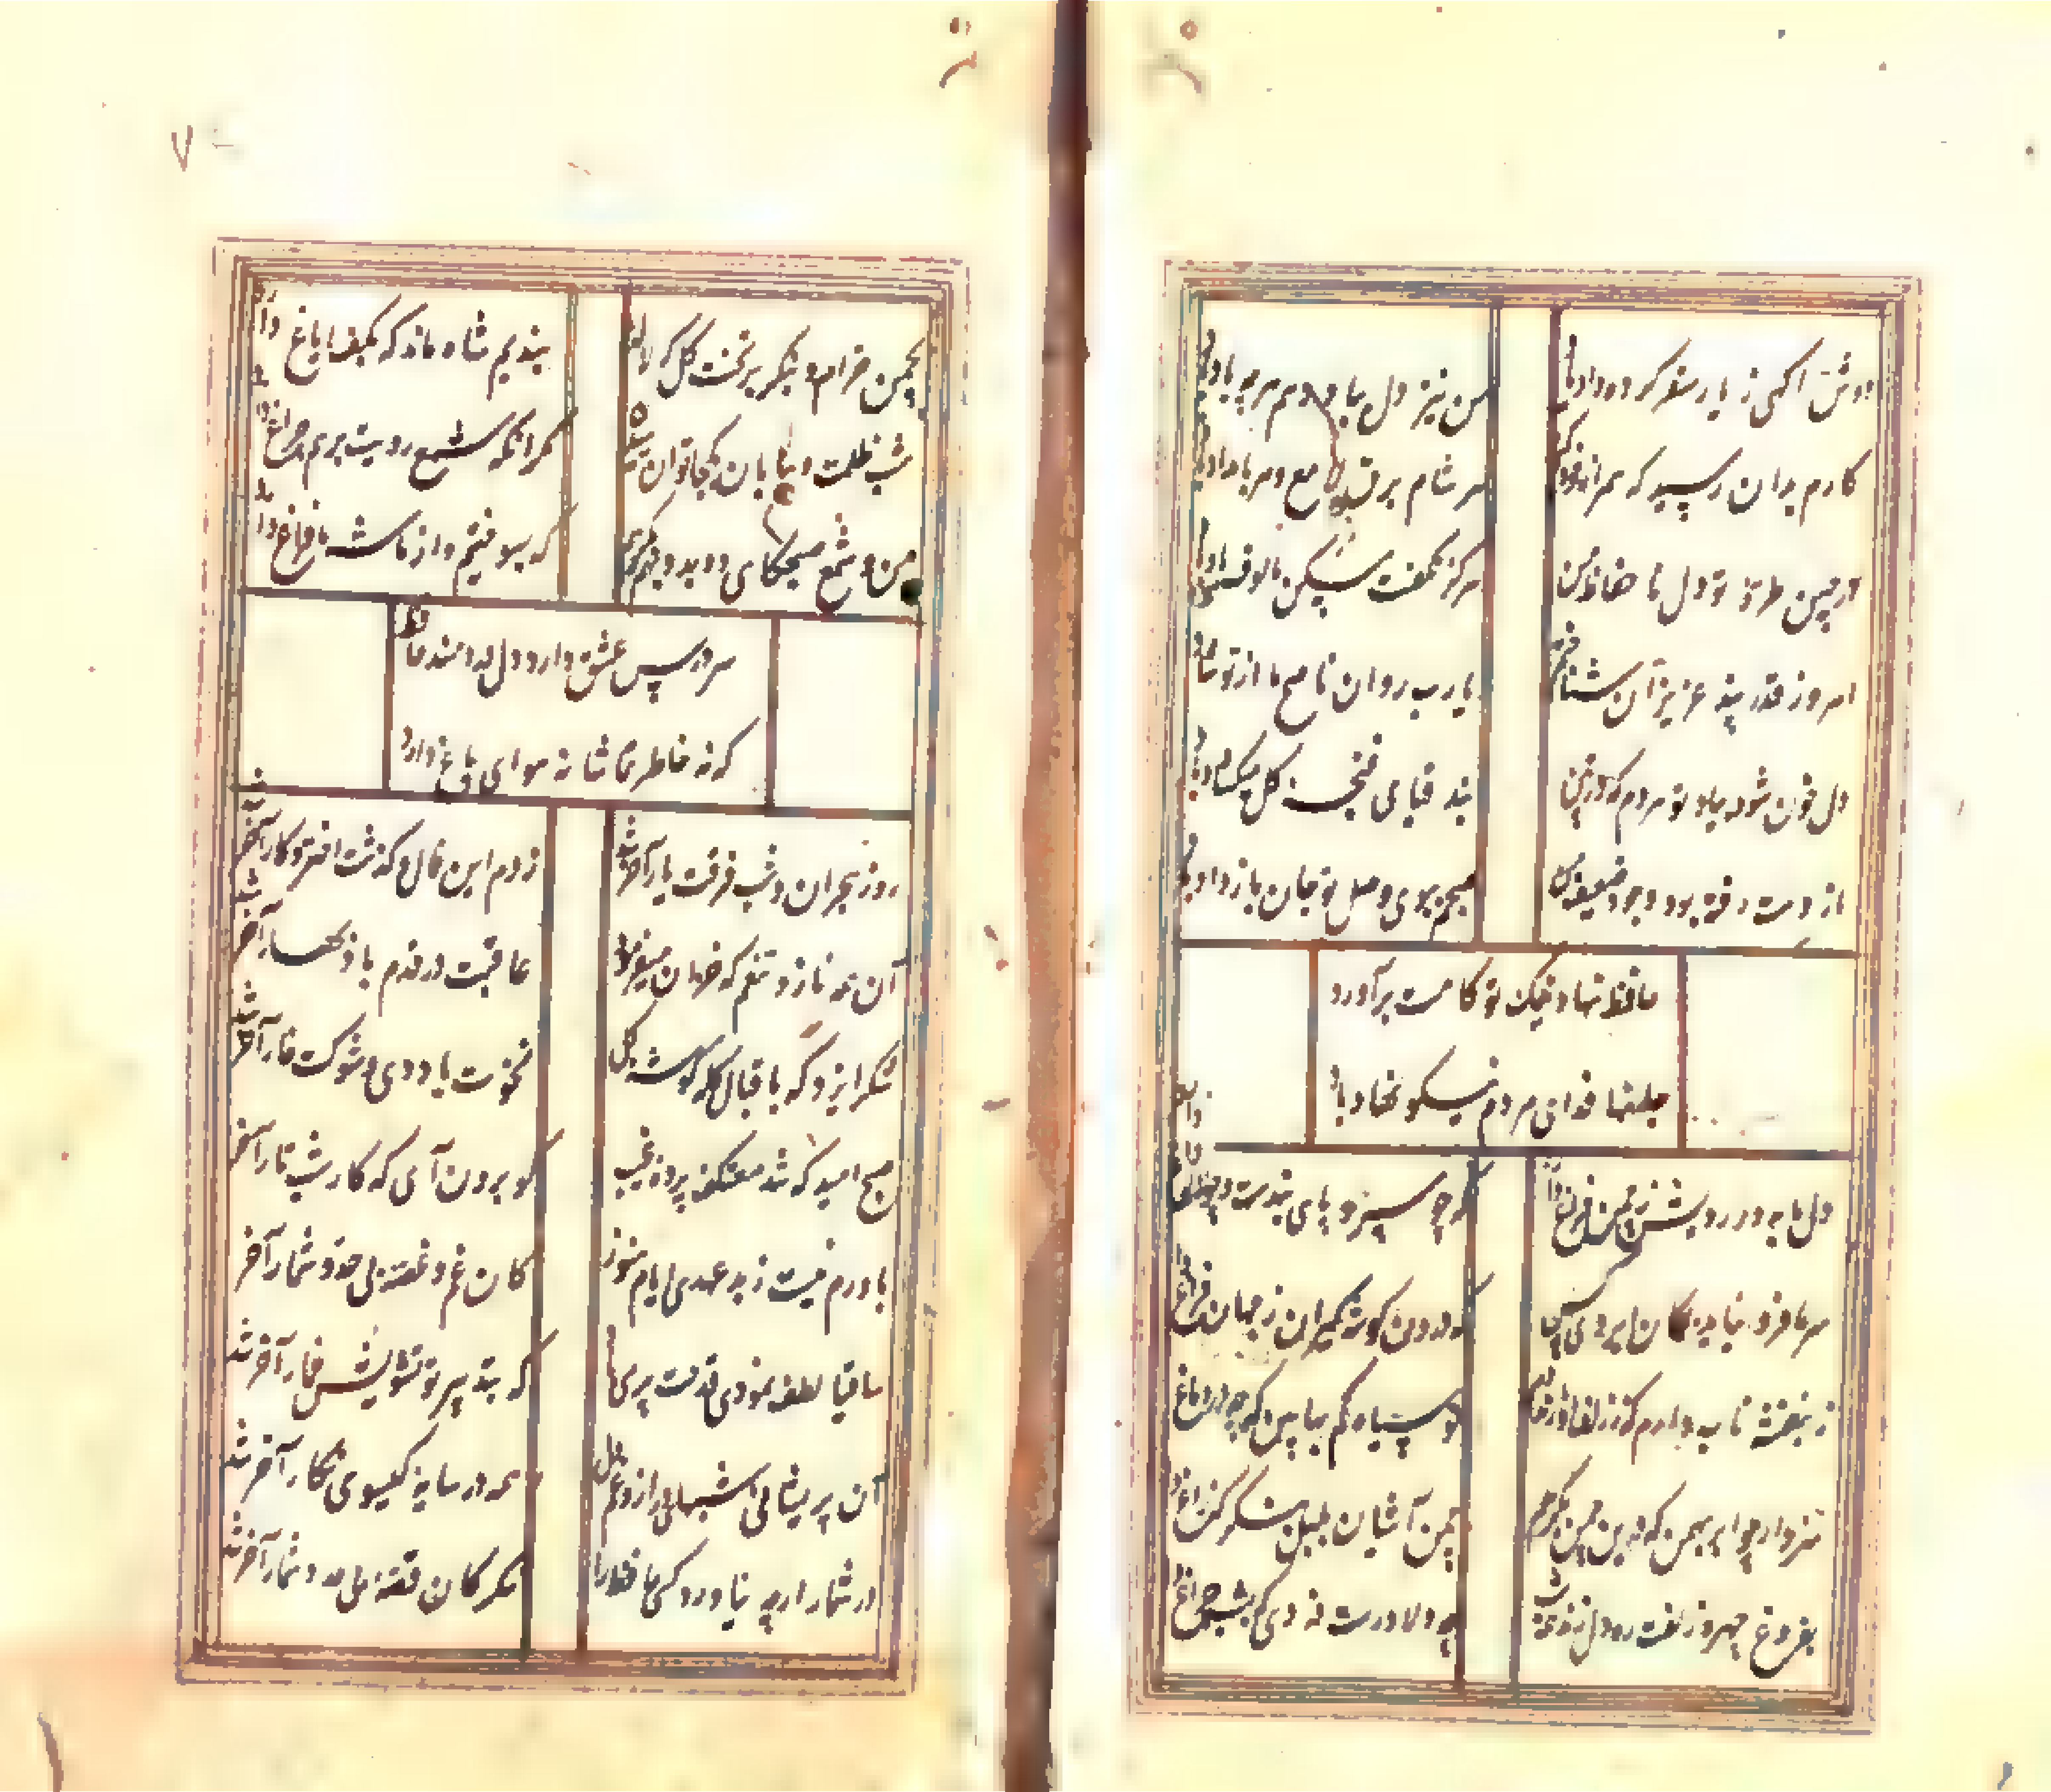 دوش آگهی ز یار سفر کرده داد باد
من نیز دل بباد دهم هرچه باد باد
کارم بدان رسید که همراز خود کنم
هر شام برق لامع و هر بامداد باد
در چین طره تو دل بی حفاظ من
هرگز نگفت مسکن مالوف یاد باد
امروز قدر پند عزیزان شناختم
یا رب روان ناصح ما از تو شاد باد
دل خون شود بیاد تو هر دم که در چمن
بند قبای غنچه گل میگشاد باد
از دست رفته بود وجود ضعیف من
صبحم ببوی وصل تو جان باز داد باد
حافظ نهاد نیک تو کامت برآورد
جانها فدای مردم نیکو نهاد باد
دل ما بدور رویش ز چمن فراغ دارد
که چو سرو پای بندست و چو لاله داغ دارد
سر ما فرو نیاید بکمان ابروی کس
که درون گوشه گیران ز جهان فراغ دارد
ز بنفشه تاب دارم که ز زلف او زند دم
تو سیاه کم بها بین که چه در دماغ دارد
سزدار چو ابر بهمن که درین چمن بگریم
چمن آشیان بلبل بنگر که زاغ دارد
بفروغ چهره زلفت ره دل زند همه شب
چه دلاورست دزدی که بشب چراغ دارد
بچمن خرام و بنگر بر تخت گل که لاله
بندیم شاه ماند که بکف ایاغ دارد
شب ظلمت و بیابان بکجا توان رسیدن
مگر آنکه شمع رویت برهم چراغ دارد
من و شمع صبحگاهی
که بسوختیم و از ما بت ما فراغ دارد
سر درس عشق دارد دل دردمند حافظ
که نه خاطر تماشا نه هوای باغ دارد
روز هجران و شب فرقت یار آخر شد
زدم این فال و گذشت اختر و کار آخر شد
آن همه ناز و تنعم که خزان میفرمود
عاقبت در قدم باد بهار آخر شد
شکر ایزد که باقبال کله گوشه گل
نخوت باد دی و شوکت خار آخر شد
صبح امید که شد معتکف پرده غیب
گو برون آی که کار شب تار آخر
باورم نیست ز بد عهدی ایام هنوز
کان غم و غصه بی حد و شمار آخر
ساقیا لطف نمودی قدحت پر می باد
که بتدبیر تو تشویش خمار آخر شد
آن پریشانی شبهای دراز و غم دل
همه در سایه گیسوی نگار آخر شد
در شمار ارچه نیاورد کسی حافظ را
شکر کان بی حد و شمار آخر شد